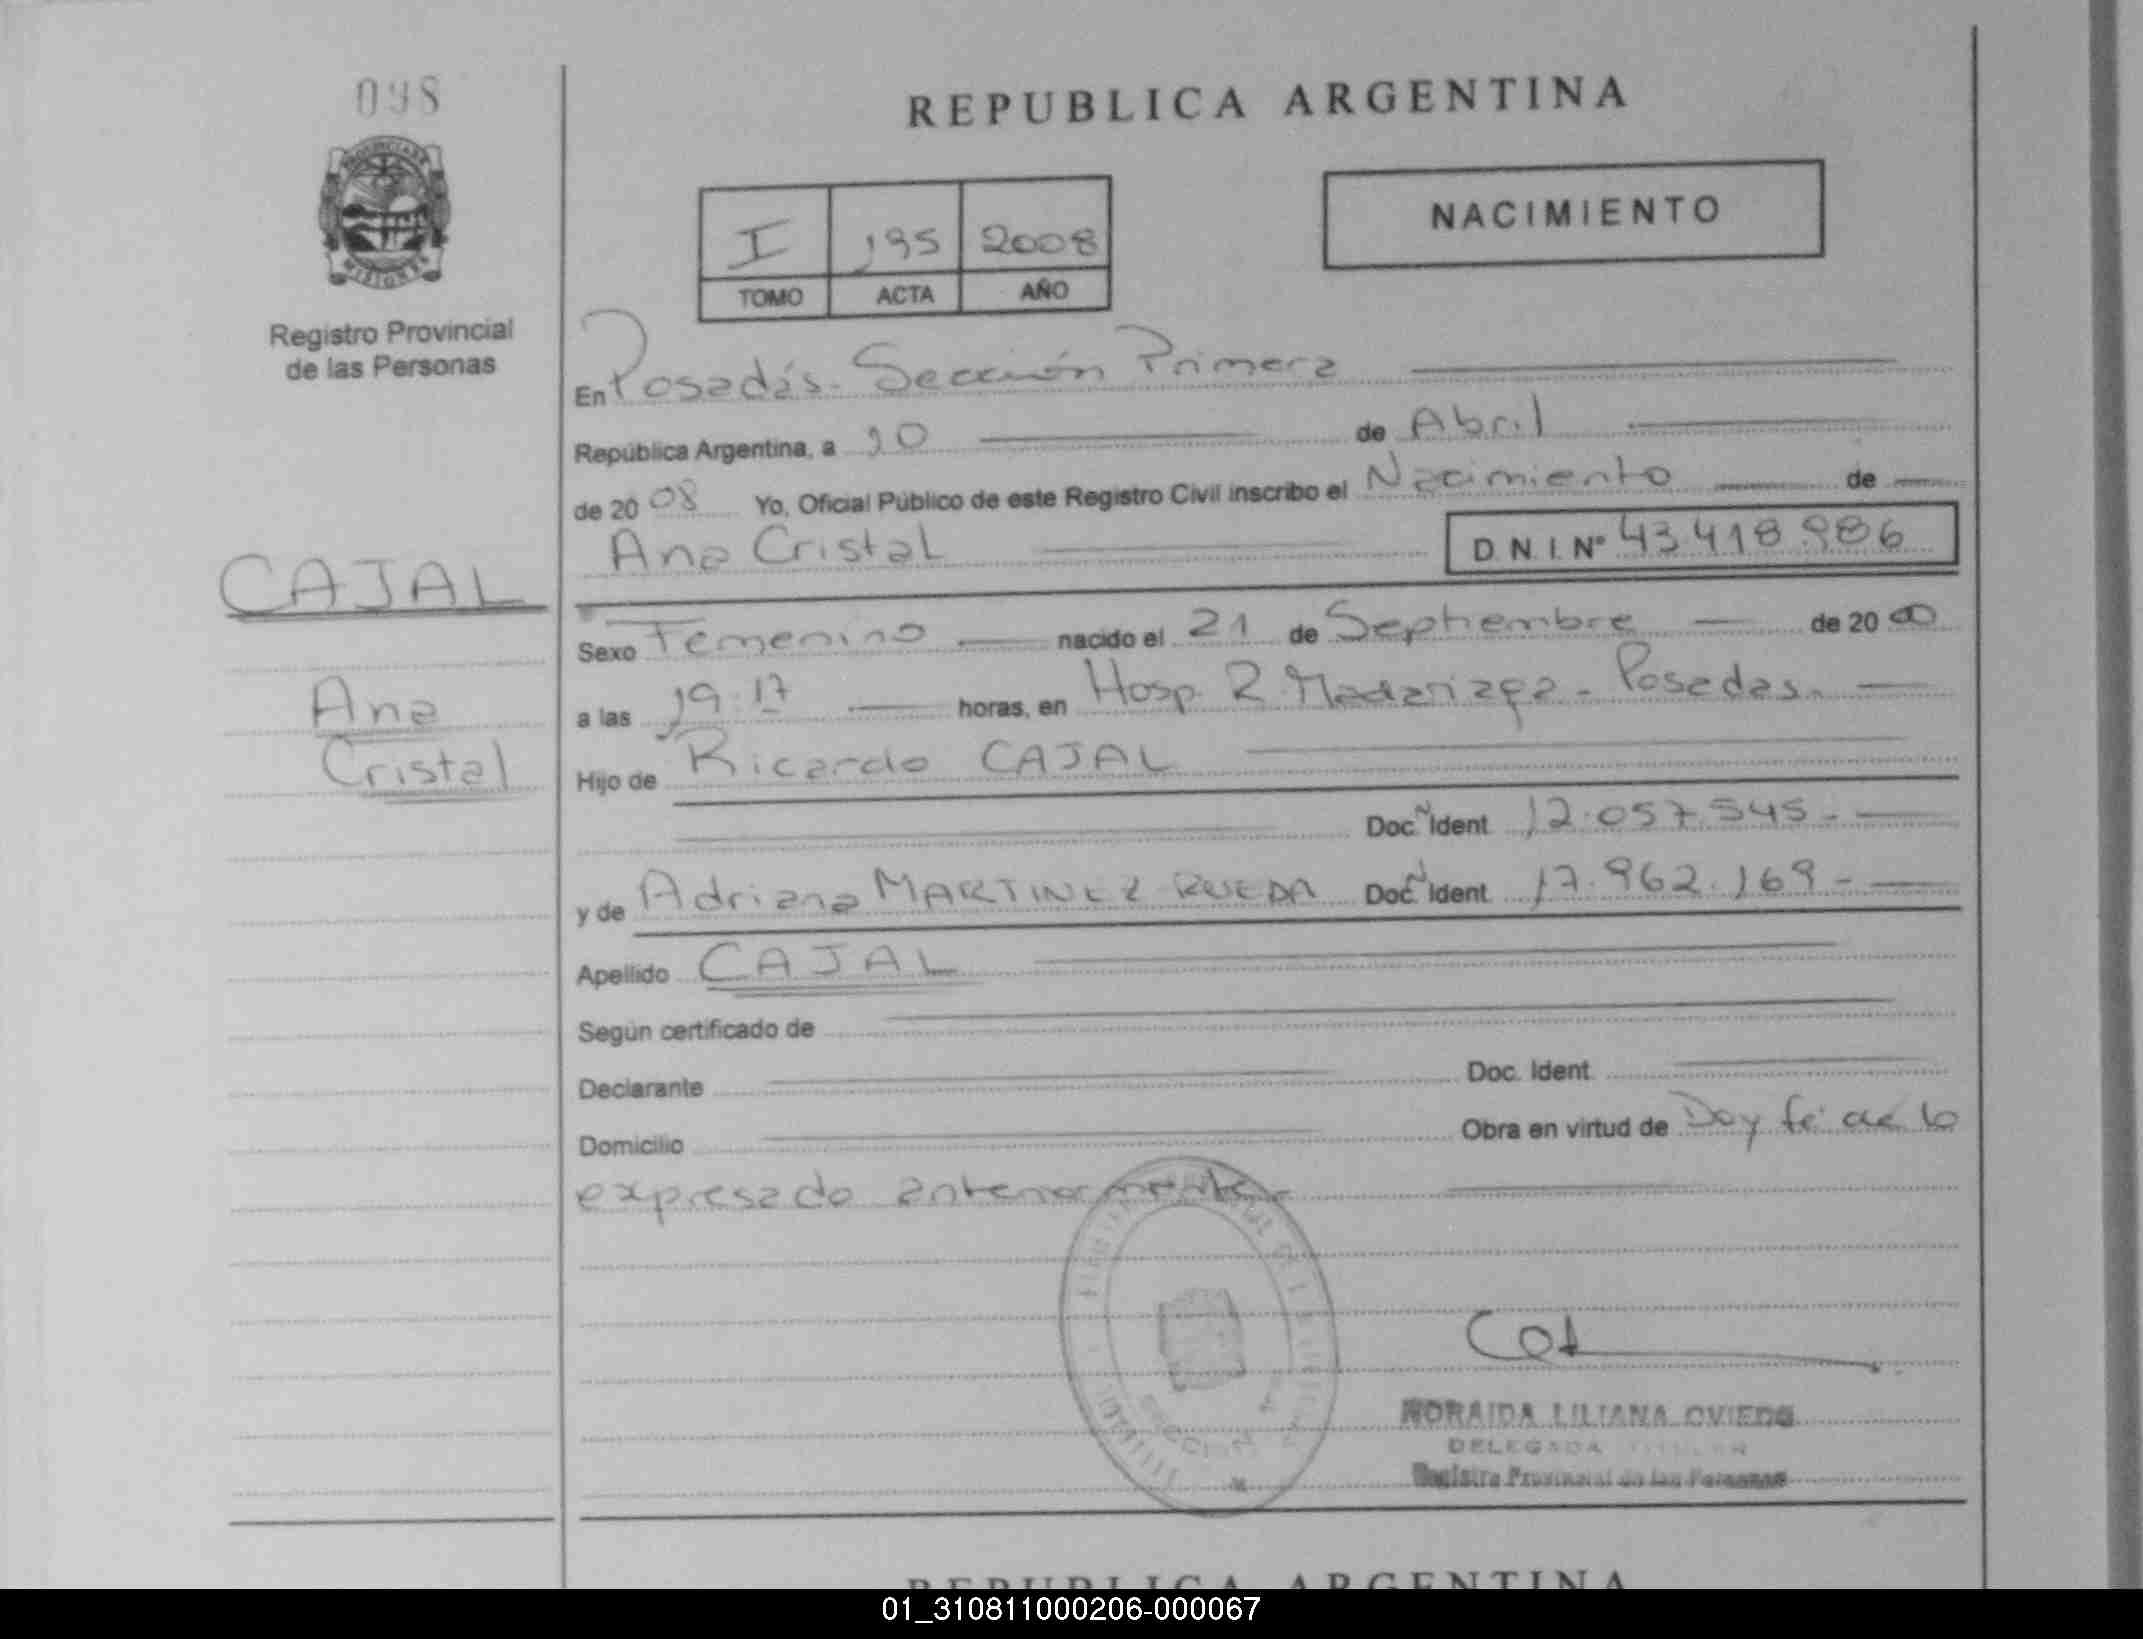 098
REPUBLICA ARGENTINA
PROVINCIA DE
MISIONES
Registro Provincial
de las Personas
I 195 2008
TOMO ACTA AÑO
NACIMIENTO
En Posadas - Sección Primera
República Argentina, a 10 de Abril
de 20 08 Yo, Oficial Público de este Registro Civil inscribo el Nacimiento de
Ana Cristal D.N.I. Nº 43 418 986
CAJAL
Ana
Cristal
Sexo Femenino nacido el 21 de Septiembre de 20 00
a las 19.17 horas, en Hosp. R. Madariaga - Posadas.
Hijo de Ricardo CAJAL
Doc. Ident. 12.057.545-
y de Adriana MARTINEZ RUEDA Doc. Ident. 17.962.169-
Apellido CAJAL
Según certificado de
Declarante Doc. Ident.
Domicilio Obra en virtud de Doy fe de lo
expresado anteriormente
SECCION
NORAIDA LILIANA OVIEDO
DELEGADA TITULAR
Registro Provincial de las Personas
REPUBLICA ARGENTINA
01_310811000206-000067